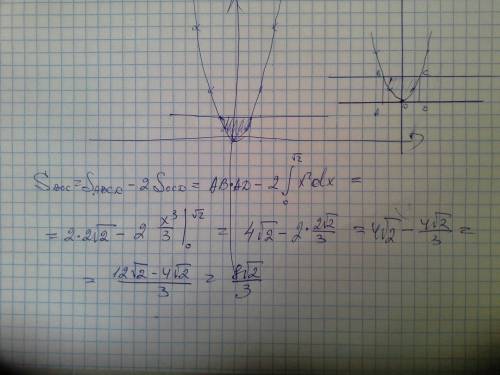 B C
A O D
S_BOC = S_ABCD − 2 S_OCD = AB·AD − 2∫₀^√2 x²dx =
= 2·2√2 − 2 x³/3 |₀^√2 = 4√2 − 2·2√2/3 = 4√2 − 4√2/3 =
= (12√2 − 4√2)/3 = 8√2/3